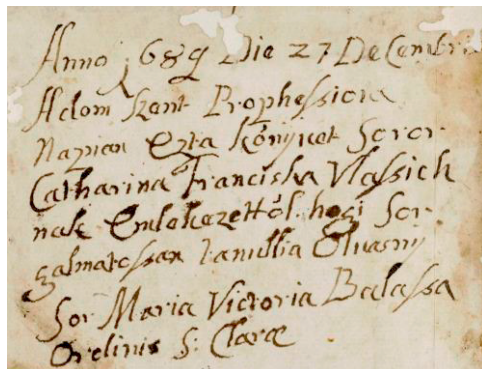 Anno 1689 Die 27 Decembris
Adom Szent Prophessioia
Napian Ezta kőnÿuet Soror
Catharina Franciska Vlassich
nak Emlekezettől hogi Sor
galmatossan tanullia Oluasnÿ
Sor Maria Victoria Balassa
Ordinis S: Claræ